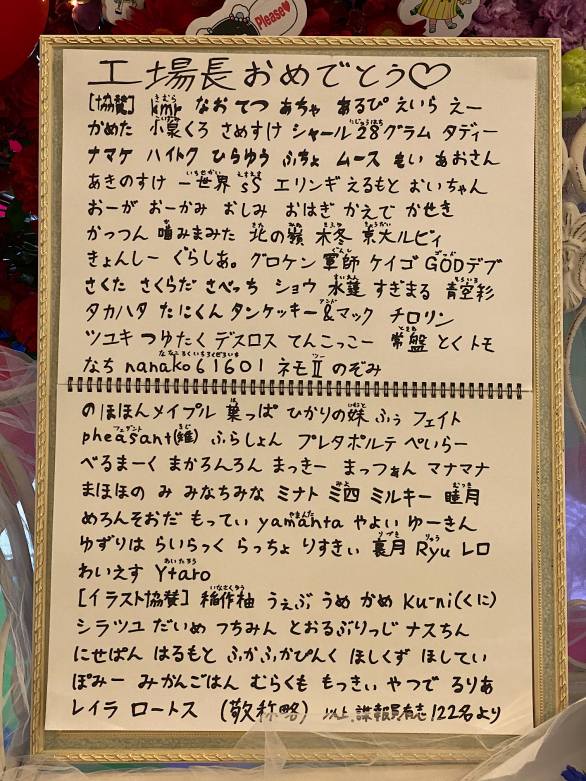 Please♥
工場長おめでとう♡
[協賛] kmr なお てつ あちゃ あるぴ えいら えー
かめた 小泉くろ さめすけ シャール 28グラム タディー
ナマケ ハイトク ひらゆう ふちょ ムース もい あおさん
あきのすけ 一世界 sS エリンギ えるもと おいちゃん
おーが おーかみ おしみ おはぎ かえで かせき
かっつん 噛みまみた 北の嶺 柊 京大ルビィ
きょんしー ぐらしあ。 グロケン 軍師 ケイゴ GODデブ
さくた さくらだ さべっち ショウ 水蓮 すぎまる 青空彩
タカハタ たにくん タンケッキー&マック チロリン
ツユキ つゆたく デスロス てんこっこー 常盤 とく トモ
なち nanako61601 ネモⅡ のぞみ
のほほんメイプル 葉っぱ ひかりの妹 ふぅ フェイト
pheasant(雉) ふらしょん プレタポルテ ぺいらー
べるまーく まかろんろん まっきー まっつぁん マナマナ
まほほの み みなちみな ミナト 三四 ミルキー 睦月
めろんそおだ もってい yamanta やよい ゆーきん
ゆずりは らいらっく らっちょ りすきぃ 裏月 Ryu レロ
わいえす Ytaro
[イラスト協賛] 稲作柚 うぇぶ うめ かめ Ku-ni(くに)
シラツユ だいめ つちみん とおるぶりっじ ナスちん
にせぱん はるもと ふかふかぴんく ほしくず ほしてい
ぽみー みかんごはん むらくも もっきぃ やつで るりあ
レイラ ロートス (敬称略) 以上、諜報員有志122名より